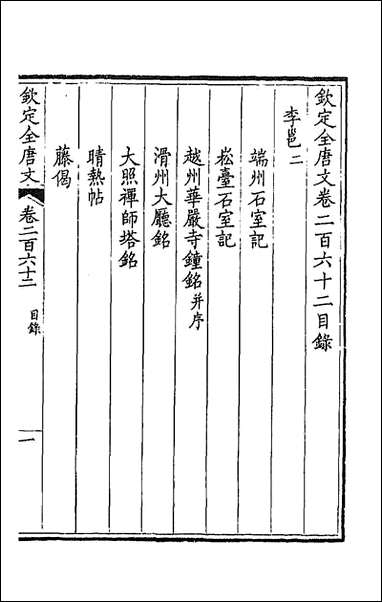 欽定全唐文卷二百六十二目錄
李邕二
端州石室記
崧臺石室記
越州華嚴寺鐘銘并序
滑州大廳銘
大照禪師塔銘
晴熱帖
藤偈
欽定全唐文
卷二百六十二
目錄
一